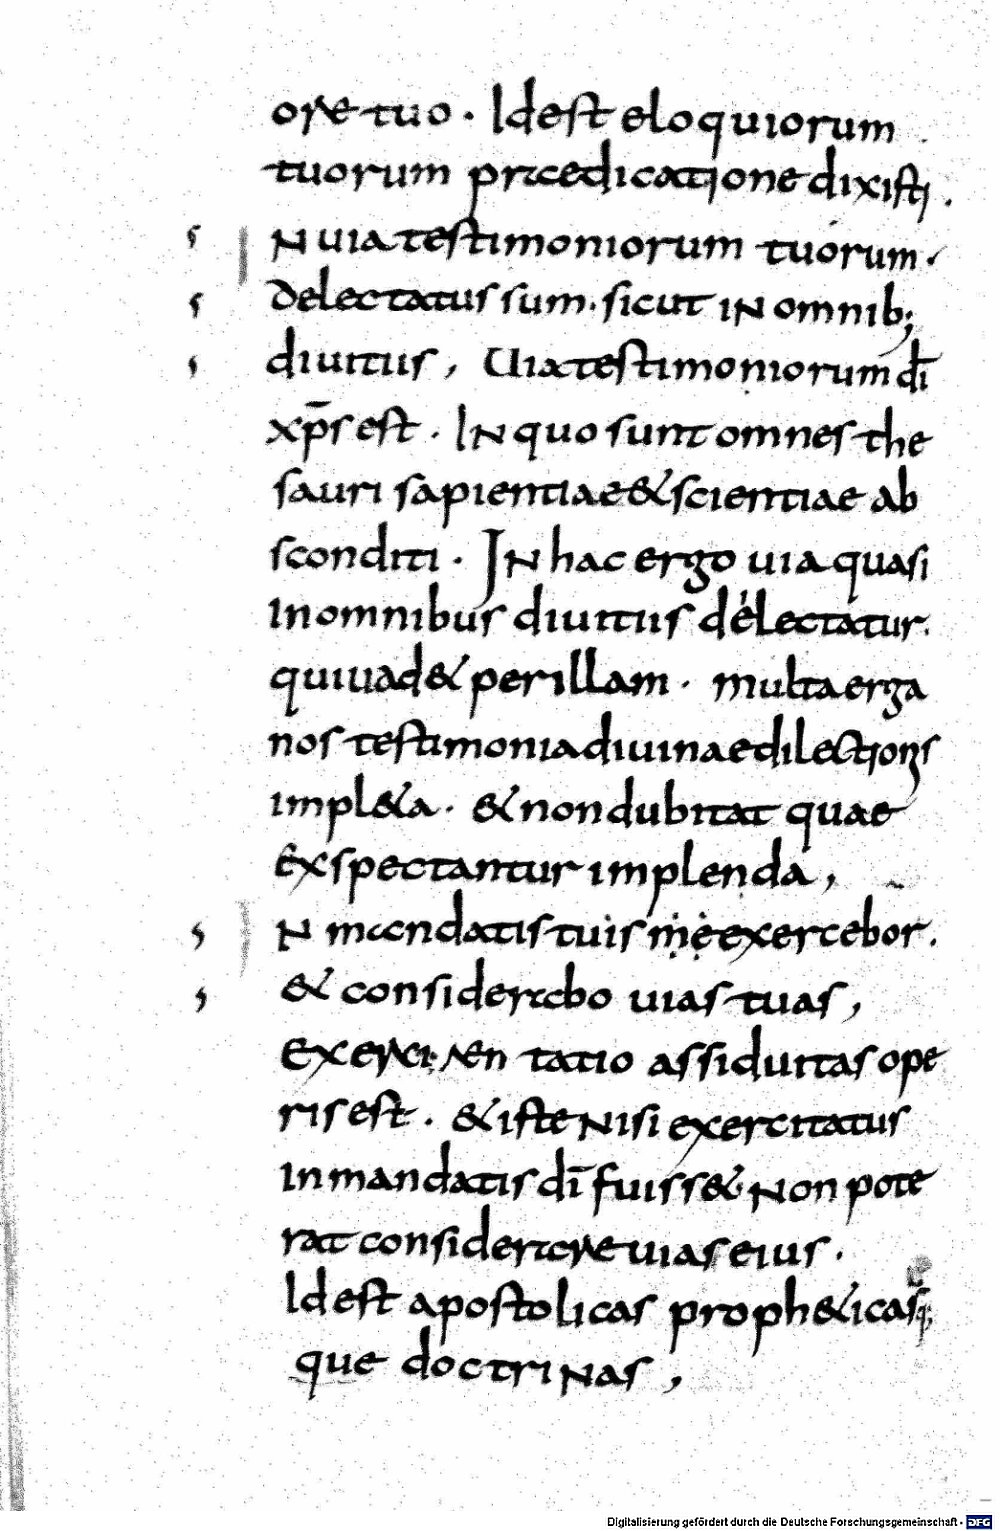 ore tuo . Idest eloquiorum
tuorum praedicatione dixisti .
N uia testimoniorum tuorum .
delectatus sum . sicut in omnib;
diuitiis , Uia testimoniorum dī
xp̄s est . In quo sunt omnes the
sauri sapientiae & scientiae ab
sconditi . In hac ergo uia quasi
in omnibus diuitiis delectatur .
qui uad& per illam . multa erga
nos testimonia diuinae dilectionis
impl&a . & non dubitat quae
exspectantur implenda ,
N mandatis tuis me exercebor .
& considerabo uias tuas ,
Exerci tatio assiduitas ope
ris est . & iste nisi exercitatus
in mandatis dī fuiss& non pote
rat considerare uias eius .
Idest apostolicas proph&icas q;
que doctrinas ,
Digitalisierung gefördert durch die Deutsche Forschungsgemeinschaft - DFG